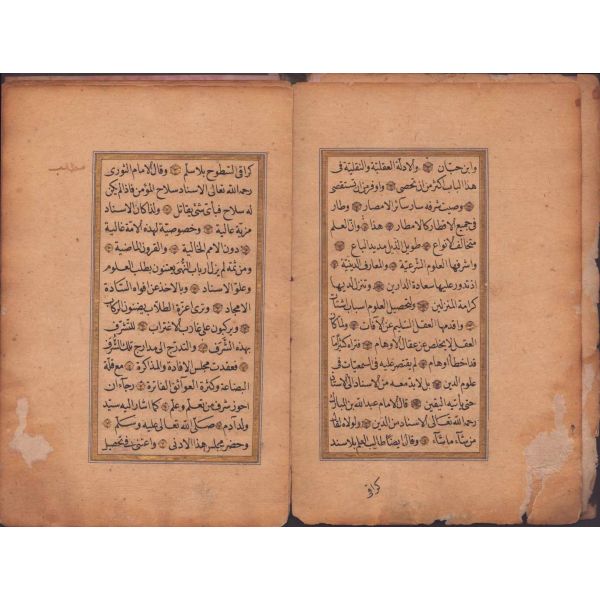 وابن حبان والادلة العقلية والنقلية فى
هذا الباب اكثر من ان تحصى واوفر من ان تستقصى
وصيت شرفه سار سائر الامصار وطار
فى جميع الاقطار كالامطار هذا وان العلم
متخالف الانواع طويل الذيل مديد الباع
واشرفها العلوم الشرعية والمعارف الدينية
اذ تدور عليها سعادة الدارين وتنزل لديها
كرامة المنزلين ولتحصيل العلوم اسباب شتات
واقدمها العقل السليم عن الآفات ولما كان
العقل لا يخلص عن عقال الاوهام فتراه كثيرا ما
قد اخطأ وهام لم يقتصر عليه فى السمعيات فى
علوم الدين بل لابد معه من الاسناد الى الاثبات
حتى يأتيه اليقين قال الامام عبد الله بن المبارك
رحمه الله تعالى الاسناد من الدين ولولاه لقال
من شاء ما شاء وقال ايضا طالب العلم بلا سند
كراقى
كراقى السطوح بلا سلم وقال الامام الثورى
رحمه الله تعالى الاسناد سلاح المؤمن فاذا لم يكن
له سلاح فبأى شئ يقاتل ولذا كان الاسناد
مزية عالية وخصوصية لهذه الامة غالية
دون الامم الخالية والقرون الماضية
ومن ثمة لم يزل ارباب النهى يعتنون بطلب العلوم
وعلو الاسناد وبالاخذ عن افواه السادة
الامجاد وترى عزة الطلاب يضنون الركاب
ويركبون على غارب الاغتراب للتشرف
بهذه الشرف والتدرج الى مدارج تلك الشرف
فعقدت مجلس الافادة والمذاكرة مع قلة
البضاعة وكثرة العوائق الفاترة رجاء ان
احوز شرف من تعلم وعلم كما اشار اليه سيد
ولد ادم صلى الله تعالى عليه وسلم
وحضر مجلس هذا الادنى واعتنى فى تحصيل